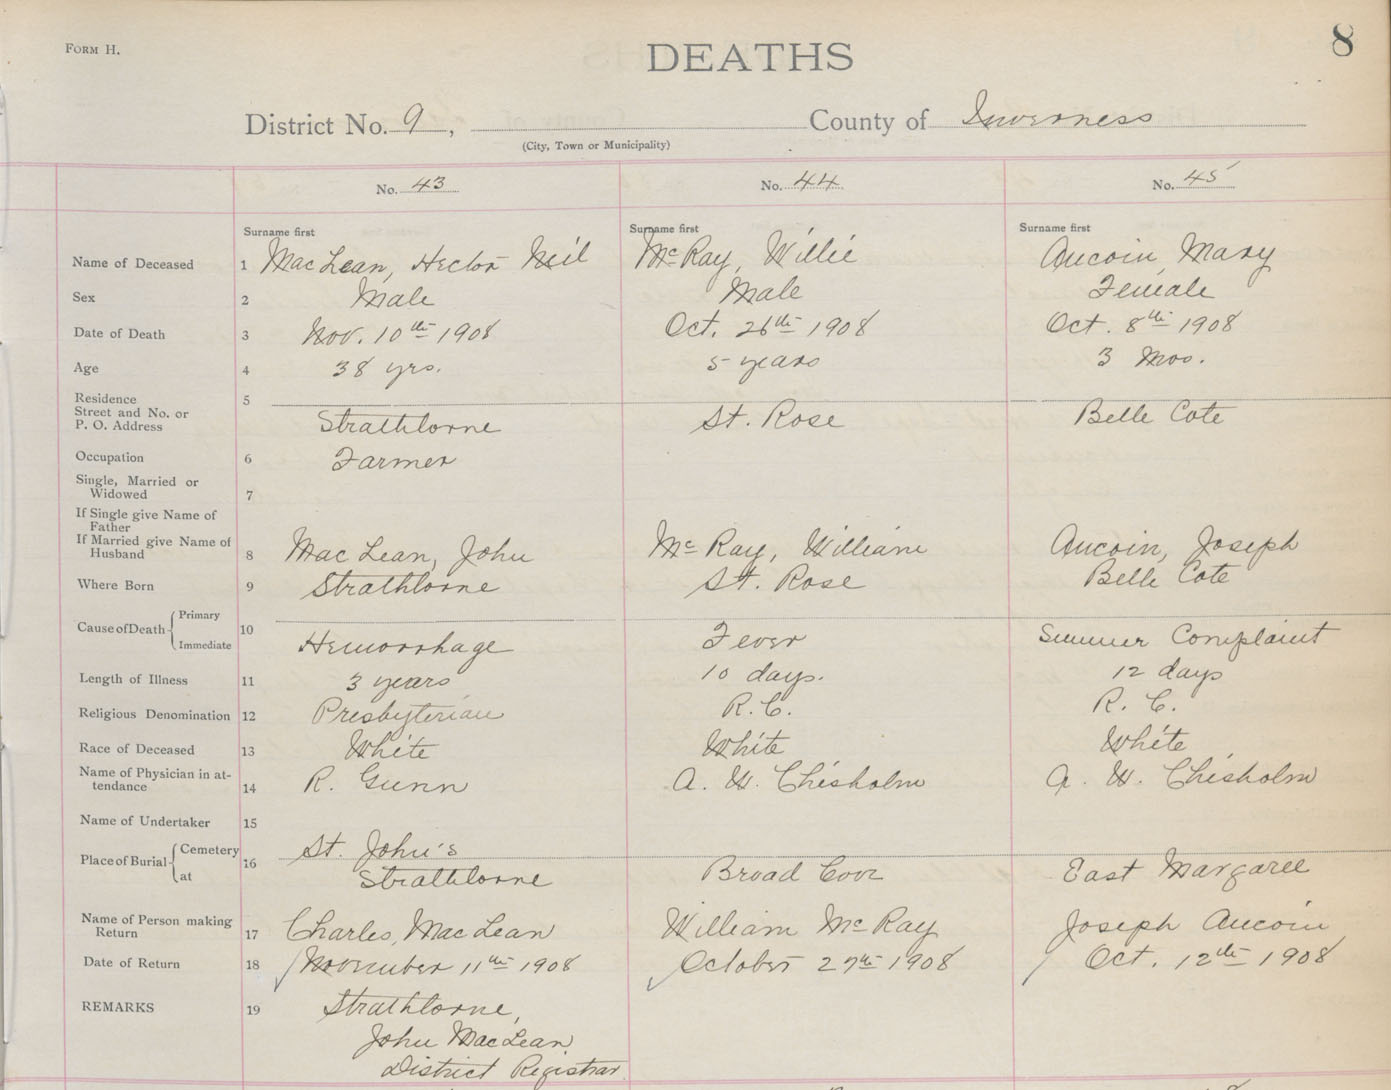 FORM H.
DEATHS
8
District No. 9, County of Inverness
(City, Town or Municipality)
No. 43 No. 44 No. 45
Surname first Surname first Surname first
Name of Deceased 1 MacLean, Hector Neil McRay, Willie Aucoin, Mary
Sex 2 Male Male Female
Date of Death 3 Nov. 10th 1908 Oct. 26th 1908 Oct. 8th 1908
Age 4 38 yrs. 5 years 3 Mos.
Residence 5
Street and No. or
P. O. Address Strathlorne St. Rose Belle Cote
Occupation 6 Farmer
Single, Married or
Widowed 7
If Single give Name of
Father
If Married give Name of
Husband 8 MacLean, John McRay, William Aucoin, Joseph
Where Born 9 Strathlorne St. Rose Belle Cote
Cause of Death Primary 10
Immediate Hemorrhage Fever Summer Complaint
Length of Illness 11 3 years 10 days. 12 days
Religious Denomination 12 Presbyterian R.C. R.C.
Race of Deceased 13 White White White
Name of Physician in at-
tendance 14 R. Gunn A. W. Chisholm A. W. Chisholm
Name of Undertaker 15
Place of Burial Cemetery 16 St. John's
at Strathlorne Broad Cove East Margaree
Name of Person making
Return 17 Charles MacLean William McRay Joseph Aucoin
Date of Return 18 November 11th 1908 October 27th 1908 Oct. 12th 1908
REMARKS 19 Strathlorne,
John MacLean
District Registrar